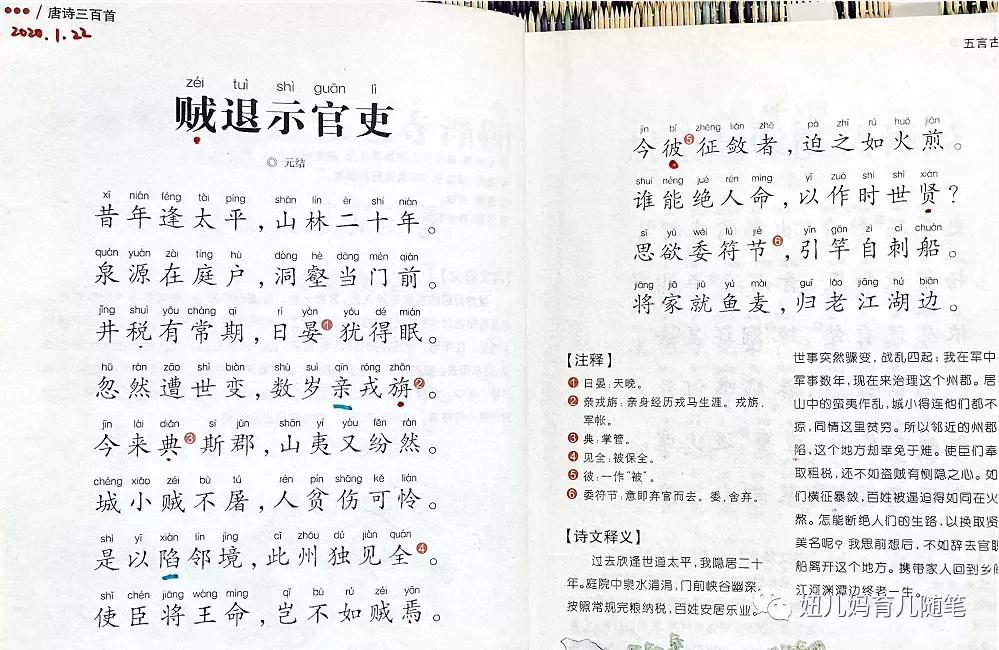 唐诗三百首
2020.1.22
zéi tuì shì guān lì
贼退示官吏
◎ 元结
xī nián féng tài píng shān lín èr shí nián
昔年逢太平，山林二十年。
quán yuán zài tíng hù dòng hè dāng mén qián
泉源在庭户，洞壑当门前。
jǐng shuì yǒu cháng qī rì yàn yóu dé mián
井税有常期，日晏❶犹得眠。
hū rán zāo shì biàn shù suì qīn róng zhān
忽然遭世变，数岁亲戎旃❷。
jīn lái diǎn sī jùn shān yí yòu fēn rán
今来典❸斯郡，山夷又纷然。
chéng xiǎo zéi bù tú rén pín shāng kě lián
城小贼不屠，人贫伤可怜。
shì yǐ xiàn lín jìng cǐ zhōu dú jiàn quán
是以陷邻境，此州独见全❹。
shǐ chén jiāng wáng mìng qǐ bù rú zéi yān
使臣将王命，岂不如贼焉。
五言古
jīn bǐ zhēng liǎn zhě pò zhī rú huǒ jiān
今彼❺征敛者，迫之如火煎。
shuí néng jué rén mìng yǐ zuò shí shì xián
谁能绝人命，以作时世贤？
sī yù wěi fú jié yǐn gān zì cì chuán
思欲委符节❻，引竿自刺船。
jiāng jiā jiù yú mài guī lǎo jiāng hú biān
将家就鱼麦，归老江湖边。
【注释】
❶ 日晏：天晚。
❷ 亲戎旃：亲身经历戎马生涯。戎旃，
军帐。
❸ 典：掌管。
❹ 见全：被保全。
❺ 彼：一作“被”。
❻ 委符节：意即弃官而去。委，舍弃。
【诗文释义】
过去欣逢世道太平，我隐居二十
年。庭院中泉水涓涓，门前峡谷幽深。
按照常规完粮纳税，百姓安居乐业。
世事突然骤变，战乱四起；我在军中
军事数年，现在来治理这个州郡。居
山中的蛮夷作乱，城小得连他们都不
掠，同情这里贫穷。所以邻近的州郡
陷，这个地方却幸免于难。使臣们奉
取租税，还不如盗贼有恻隐之心。如
们横征暴敛，百姓被逼迫得如同在火
熬。怎能断绝人们的生路，以换取贤
美名呢？我思前想后，不如辞去官职
船离开这个地方。携带家人回到乡间
江河渊潭边终老一生。
妞儿妈育儿随笔